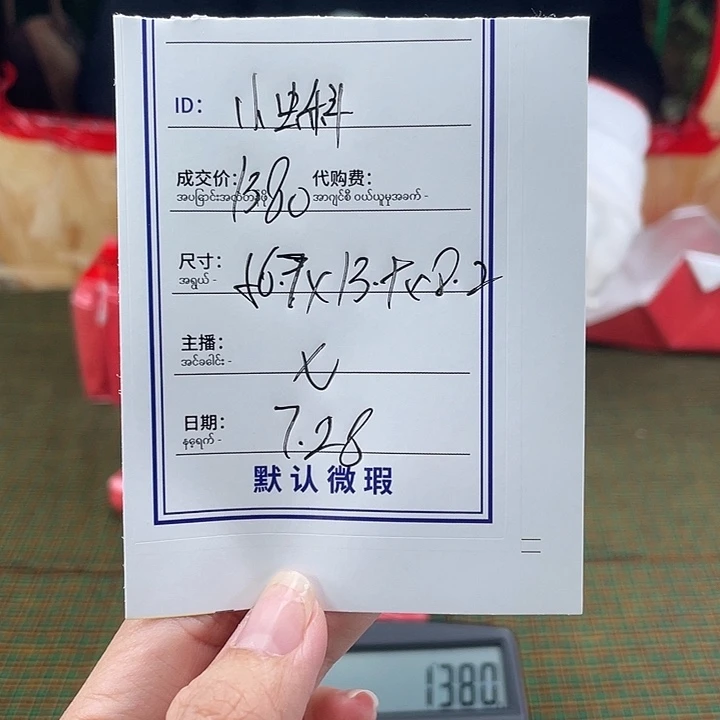 ID: 小安科
成交价: 1380 代购费:
အပြောင်းအထုတ်ဖို့ အာဂျင်စီ ဝယ်ယူမှုအခက် -
尺寸: 16.7x13.7x8.2
အရွယ် -
主播: X
အင်ခခေါင်း -
日期: 7.28
နေ့ရက် -
默认微瑕
1380